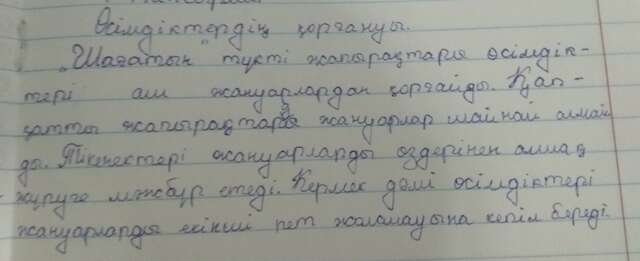 Өсімдіктердің қорғануы.
„Шағатын" түкті жапырақтары өсімдік-
тері аш жануарлардан қорғайды. Қан-
қатты жапырақтарды жануарлар шайнай алмай
ды. Тікенектері жануарларды өздерінен аулақ
жүруге мәжбүр етеді. Кермек дәмі өсімдіктері
жануарларды екінші рет жоламауына кепіл береді.